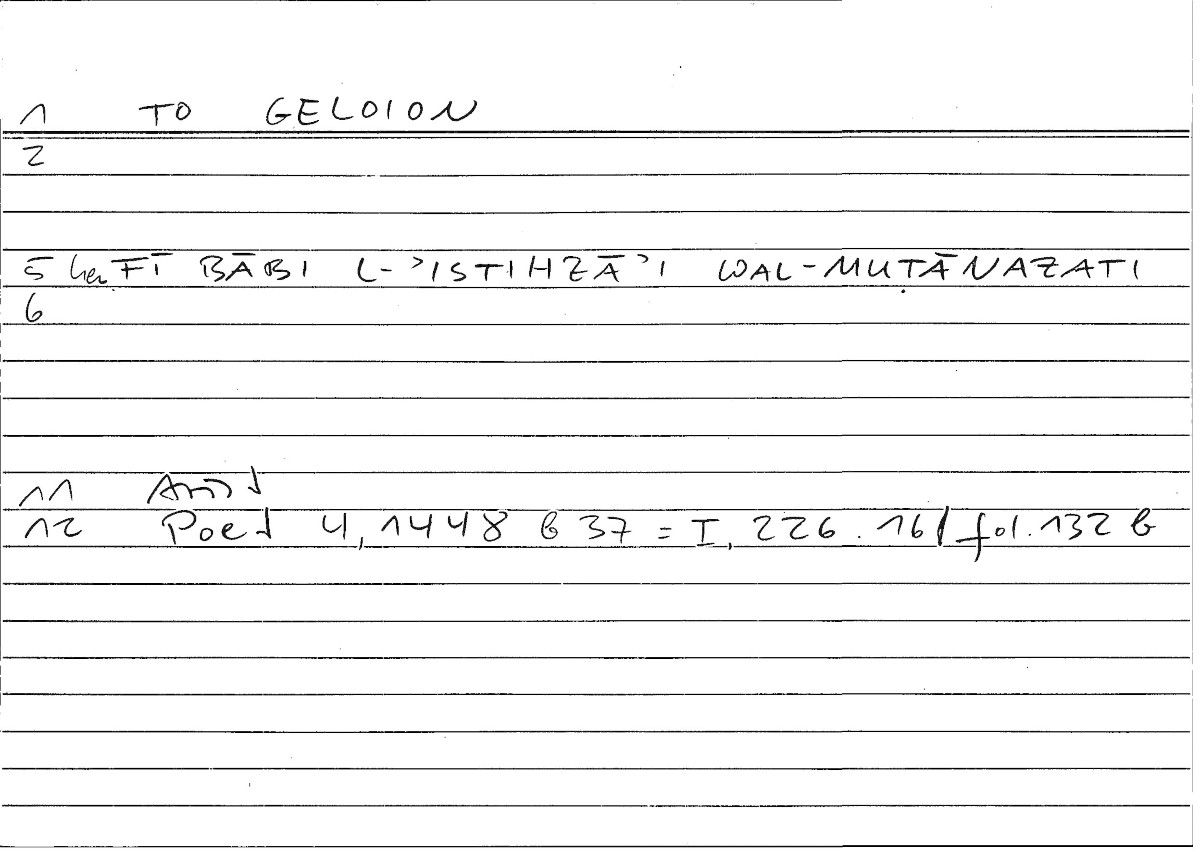 1 TO GELOION
2
5 her FĪ BĀBI L-ʾISTIHZĀʾI WAL-MUṬĀNAZATI
6
11 Arist
12 Poet 4, 1448 b 37 = I, 226.16 / fol. 132 b